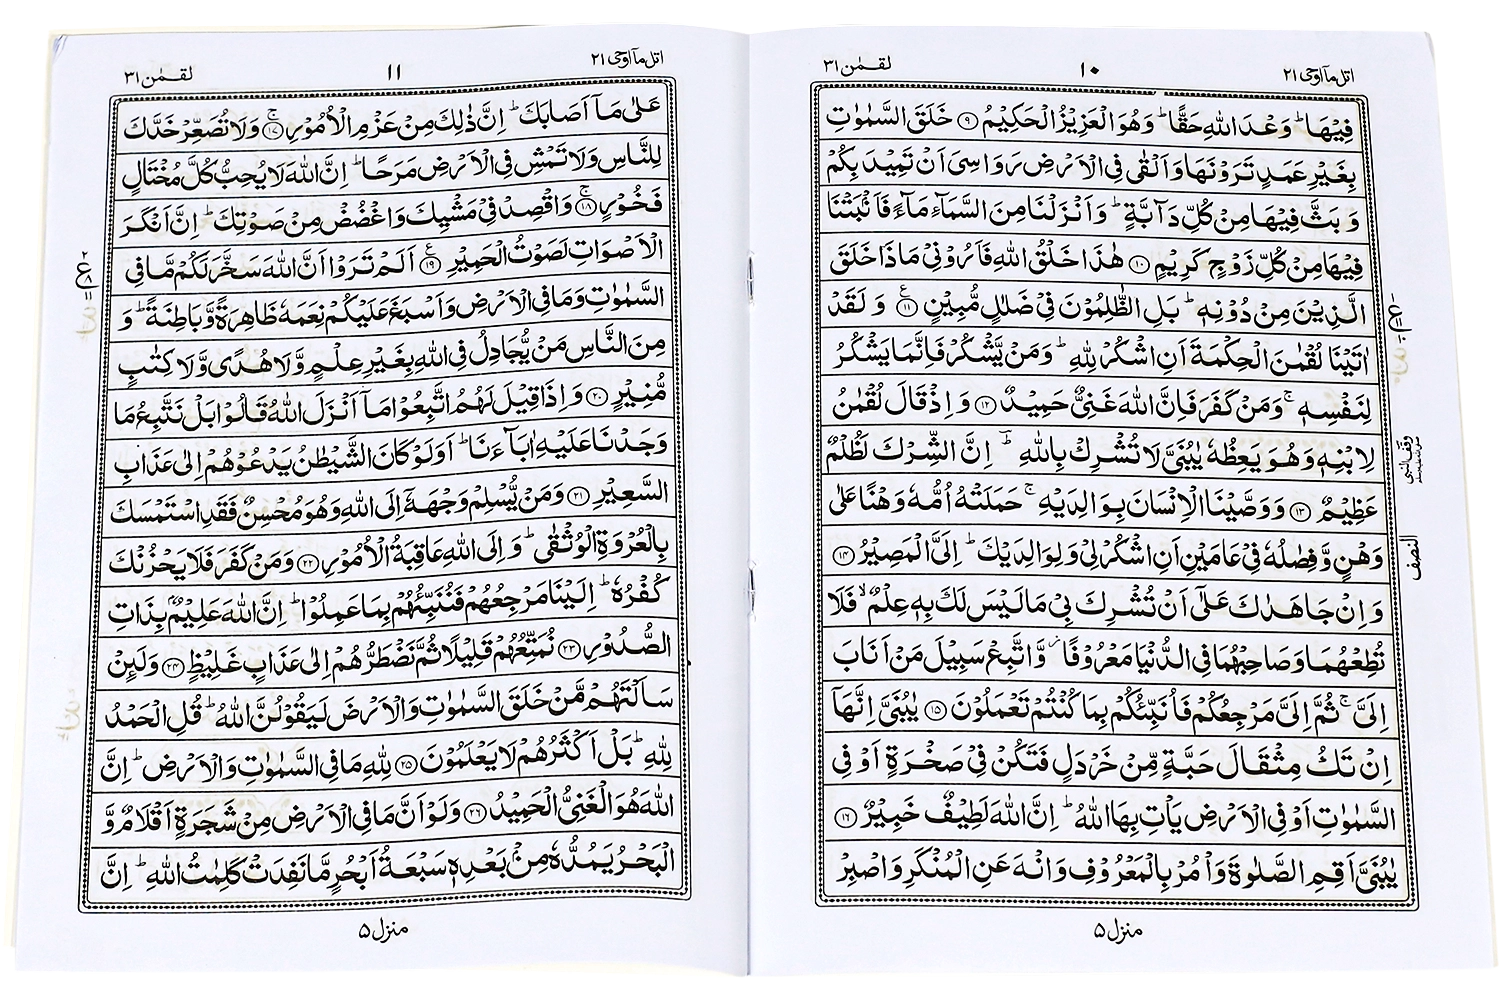 اتل مآ اوحی ۲۱
۱۰
لقمٰن ۳۱
فِیۡهَا ؕ وَعۡدَ اللّٰهِ حَقًّا ؕ وَهُوَ الۡعَزِیۡزُ الۡحَكِیۡمُ ﴿۹﴾ خَلَقَ السَّمٰوٰتِ
بِغَیۡرِ عَمَدٍ تَرَوۡنَهَا وَاَلۡقٰی فِی الۡاَرۡضِ رَوَاسِیَ اَنۡ تَمِیۡدَ بِكُمۡ
وَ بَثَّ فِیۡهَا مِنۡ كُلِّ دَآبَّةٍ ؕ وَاَنۡزَلۡنَا مِنَ السَّمَآءِ مَآءً فَاَنۡۢبَتۡنَا
فِیۡهَا مِنۡ كُلِّ زَوۡجٍ كَرِیۡمٍ ﴿۱۰﴾ هٰذَا خَلۡقُ اللّٰهِ فَاَرُوۡنِیۡ مَاذَا خَلَقَ
الَّذِیۡنَ مِنۡ دُوۡنِهٖ ؕ بَلِ الظّٰلِمُوۡنَ فِیۡ ضَلٰلٍ مُّبِیۡنٍ ﴿۱۱﴾ وَ لَقَدۡ
اٰتَیۡنَا لُقۡمٰنَ الۡحِكۡمَةَ اَنِ اشۡكُرۡ لِلّٰهِ ؕ وَمَنۡ یَّشۡكُرۡ فَاِنَّمَا یَشۡكُرُ
لِنَفۡسِهٖ ۚ وَمَنۡ كَفَرَ فَاِنَّ اللّٰهَ غَنِیٌّ حَمِیۡدٌ ﴿۱۲﴾ وَ اِذۡ قَالَ لُقۡمٰنُ
لِابۡنِهٖ وَهُوَ یَعِظُهٗ یٰبُنَیَّ لَا تُشۡرِكۡ بِاللّٰهِ ؕ اِنَّ الشِّرۡكَ لَظُلۡمٌ
عَظِیۡمٌ ﴿۱۳﴾ وَوَصَّیۡنَا الۡاِنۡسَانَ بِوَالِدَیۡهِ ۚ حَمَلَتۡهُ اُمُّهٗ وَهۡنًا عَلٰی
وَهۡنٍ وَّفِصٰلُهٗ فِیۡ عَامَیۡنِ اَنِ اشۡكُرۡ لِیۡ وَلِوَالِدَیۡكَ ؕ اِلَیَّ الۡمَصِیۡرُ ﴿۱۴﴾
وَ اِنۡ جَاهَدٰكَ عَلٰٓی اَنۡ تُشۡرِكَ بِیۡ مَا لَیۡسَ لَكَ بِهٖ عِلۡمٌ ۙ فَلَا
تُطِعۡهُمَا وَصَاحِبۡهُمَا فِی الدُّنۡیَا مَعۡرُوۡفًا ۫ وَّاتَّبِعۡ سَبِیۡلَ مَنۡ اَنَابَ
اِلَیَّ ۚ ثُمَّ اِلَیَّ مَرۡجِعُكُمۡ فَاُنَبِّئُكُمۡ بِمَا كُنۡتُمۡ تَعۡمَلُوۡنَ ﴿۱۵﴾ یٰبُنَیَّ اِنَّهَاۤ
اِنۡ تَكُ مِثۡقَالَ حَبَّةٍ مِّنۡ خَرۡدَلٍ فَتَكُنۡ فِیۡ صَخۡرَةٍ اَوۡ فِی
السَّمٰوٰتِ اَوۡ فِی الۡاَرۡضِ یَاۡتِ بِهَا اللّٰهُ ؕ اِنَّ اللّٰهَ لَطِیۡفٌ خَبِیۡرٌ ﴿۱۶﴾
یٰبُنَیَّ اَقِمِ الصَّلٰوةَ وَاۡمُرۡ بِالۡمَعۡرُوۡفِ وَانۡهَ عَنِ الۡمُنۡكَرِ وَاصۡبِرۡ
ع
وقف النبی
النصف
منزل ۵
اتل مآ اوحی ۲۱
۱۱
لقمٰن ۳۱
عَلٰی مَاۤ اَصَابَكَ ؕ اِنَّ ذٰلِكَ مِنۡ عَزۡمِ الۡاُمُوۡرِ ﴿۱۷﴾ۚ وَلَا تُصَعِّرۡ خَدَّكَ
لِلنَّاسِ وَلَا تَمۡشِ فِی الۡاَرۡضِ مَرَحًا ؕ اِنَّ اللّٰهَ لَا یُحِبُّ كُلَّ مُخۡتَالٍ
فَخُوۡرٍ ﴿۱۸﴾ۚ وَاقۡصِدۡ فِیۡ مَشۡیِكَ وَاغۡضُضۡ مِنۡ صَوۡتِكَ ؕ اِنَّ اَنۡكَرَ
الۡاَصۡوَاتِ لَصَوۡتُ الۡحَمِیۡرِ ﴿۱۹﴾ اَلَمۡ تَرَوۡا اَنَّ اللّٰهَ سَخَّرَ لَكُمۡ مَّا فِی
السَّمٰوٰتِ وَمَا فِی الۡاَرۡضِ وَاَسۡبَغَ عَلَیۡكُمۡ نِعَمَهٗ ظَاهِرَةً وَّبَاطِنَةً ؕ وَ
مِنَ النَّاسِ مَنۡ یُّجَادِلُ فِی اللّٰهِ بِغَیۡرِ عِلۡمٍ وَّلَا هُدًی وَّلَا كِتٰبٍ
مُّنِیۡرٍ ﴿۲۰﴾ وَاِذَا قِیۡلَ لَهُمُ اتَّبِعُوۡا مَاۤ اَنۡزَلَ اللّٰهُ قَالُوۡا بَلۡ نَتَّبِعُ مَا
وَجَدۡنَا عَلَیۡهِ اٰبَآءَنَا ؕ اَوَلَوۡ كَانَ الشَّیۡطٰنُ یَدۡعُوۡهُمۡ اِلٰی عَذَابِ
السَّعِیۡرِ ﴿۲۱﴾ وَمَنۡ یُّسۡلِمۡ وَجۡهَهٗۤ اِلَی اللّٰهِ وَهُوَ مُحۡسِنٌ فَقَدِ اسۡتَمۡسَكَ
بِالۡعُرۡوَةِ الۡوُثۡقٰی ؕ وَاِلَی اللّٰهِ عَاقِبَةُ الۡاُمُوۡرِ ﴿۲۲﴾ وَمَنۡ كَفَرَ فَلَا یَحۡزُنۡكَ
كُفۡرُهٗ ؕ اِلَیۡنَا مَرۡجِعُهُمۡ فَنُنَبِّئُهُمۡ بِمَا عَمِلُوۡا ؕ اِنَّ اللّٰهَ عَلِیۡمٌۢ بِذَاتِ
الصُّدُوۡرِ ﴿۲۳﴾ نُمَتِّعُهُمۡ قَلِیۡلًا ثُمَّ نَضۡطَرُّهُمۡ اِلٰی عَذَابٍ غَلِیۡظٍ ﴿۲۴﴾ وَلَئِنۡ
سَاَلۡتَهُمۡ مَّنۡ خَلَقَ السَّمٰوٰتِ وَالۡاَرۡضَ لَیَقُوۡلُنَّ اللّٰهُ ؕ قُلِ الۡحَمۡدُ
لِلّٰهِ ؕ بَلۡ اَكۡثَرُهُمۡ لَا یَعۡلَمُوۡنَ ﴿۲۵﴾ لِلّٰهِ مَا فِی السَّمٰوٰتِ وَالۡاَرۡضِ ؕ اِنَّ
اللّٰهَ هُوَ الۡغَنِیُّ الۡحَمِیۡدُ ﴿۲۶﴾ وَلَوۡ اَنَّ مَا فِی الۡاَرۡضِ مِنۡ شَجَرَةٍ اَقۡلَامٌ وَّ
الۡبَحۡرُ یَمُدُّهٗ مِنۡۢ بَعۡدِهٖ سَبۡعَةُ اَبۡحُرٍ مَّا نَفِدَتۡ كَلِمٰتُ اللّٰهِ ؕ اِنَّ
ع
منزل ۵